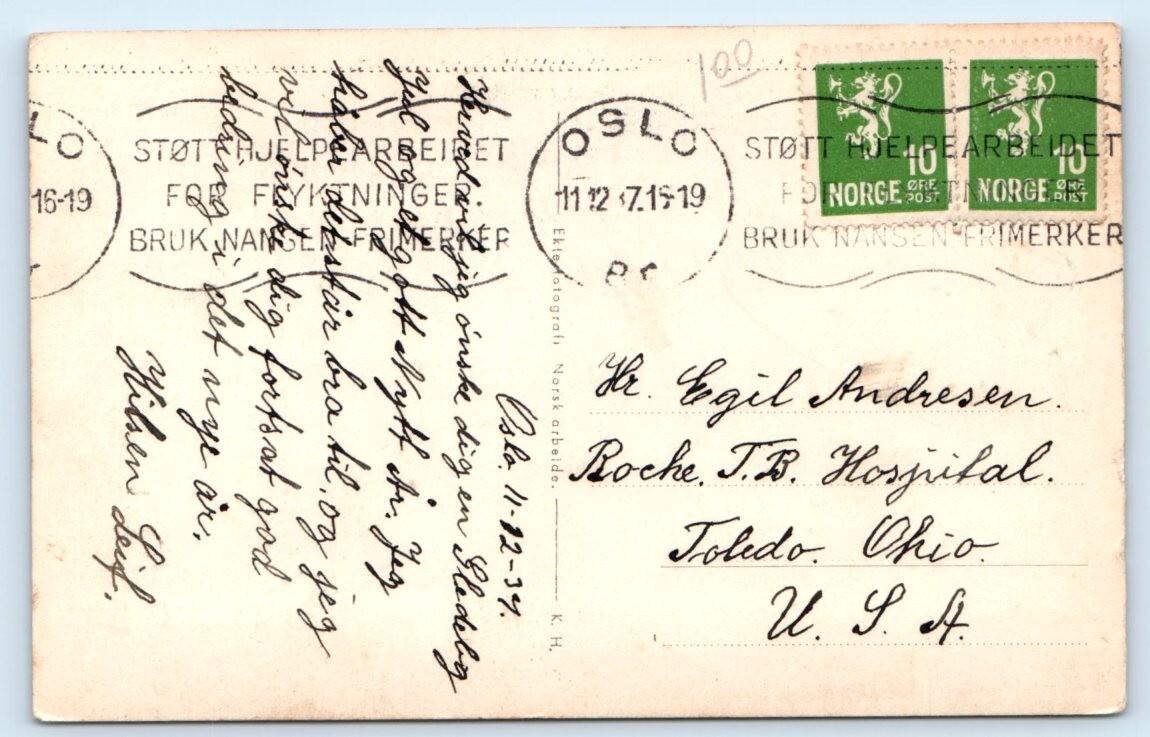 1.00
LO
16-19
STØTT HJELPEARBEIDET
FOR FLYKTNINGER.
BRUK NANSEN-FRIMERKER
OSLO
11 12 37.16-19
STØTT HJELPEARBEIDET
FOR FLYKTNINGER.
BRUK NANSEN-FRIMERKER
10
NORGE ØRE
POST
10
NORGE ØRE
POST
Oslo. 11-12-37.
Herved vil jeg ønske dig en Gledelig
Jul og et gott Nytt År. Jeg
håber det står bra til, og jeg
vil ønske dig fortsat god
bedring i det nye år.
Hilsen Leif.
Ekte fotografi Norsk arbeide. K. H.
Hr. Egil Andresen.
Roche. T.B. Hospital.
Toledo. Ohio.
U. S. A.